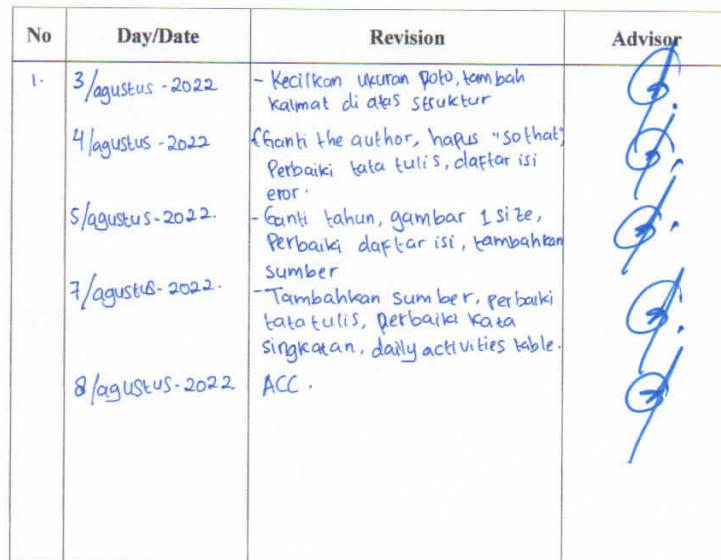 No Day/Date Revision Advisor
1. 3/agustus - 2022 - Kecilkan ukuran poto, tambah
kalmat di atas struktur
4/agustus - 2022 (Ganti the author, hapus "so that",
Perbaiki tata tulis, daftar isi
eror.
5/agustus - 2022. - Ganti tahun, gambar 1 size,
Perbaiki daftar isi, tambahkan
sumber
7/agustus - 2022. - Tambahkan sumber, perbaiki
tata tulis, perbaiki kata
singkatan, daily activities table.
8/agustus - 2022 ACC.